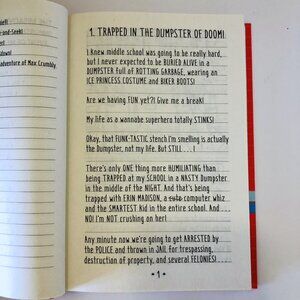 dell
e-and-Seek!
est
kdown!
adventure of Max Crumbly
1. TRAPPED IN THE DUMPSTER OF DOOM!
I knew middle school was going to be really hard,
but I never expected to be BURIED ALIVE in a
DUMPSTER full of ROTTING GARBAGE, wearing an
ICE PRINCESS COSTUME and BIKER BOOTS!
Are we having FUN yet?! Give me a break!
My life as a wannabe superhero totally STINKS!
Okay, that FUNK-TASTIC stench I'm smelling is actually
the Dumpster, not my life. But STILL . . . !
There's only ONE thing more HUMILIATING than
being TRAPPED at my SCHOOL in a NASTY Dumpster
in the middle of the NIGHT. And that's being
trapped with ERIN MADISON, a cute computer whiz
and the SMARTEST kid in the entire school. And . . .
NO! I'm NOT crushing on her!
Any minute now we're going to get ARRESTED by
the POLICE and thrown in JAIL for trespassing,
destruction of property, and several FELONIES! . . .
• 1 •